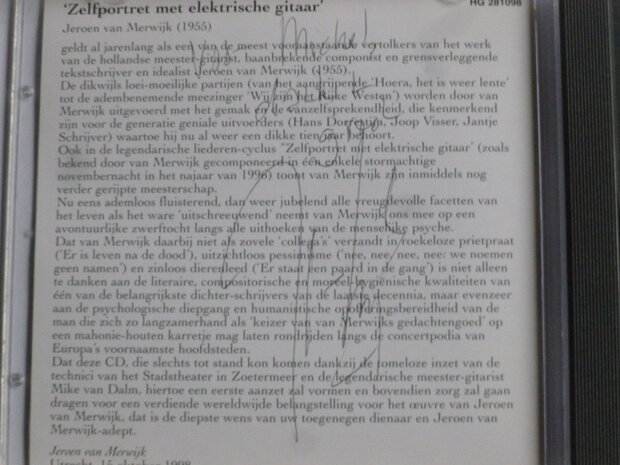 'Zelfportret met elektrische gitaar'
HG 281098
Jeroen van Merwijk (1955)
geldt al jarenlang als een van de meest vooraanstaande vertolkers van het werk
van de hollandse meester-gitarist, baanbrekende componist en grensverleggende
tekstschrijver en idealist Jeroen van Merwijk (1955).
De dikwijls loei-moeilijke partijen (van het aangrijpende 'Hoera, het is weer lente'
tot de adembenemende meezinger 'Wij zijn het Rijke Westen') worden door van
Merwijk uitgevoerd met het gemak en de vanzelfsprekendheid, die kenmerkend
zijn voor de generatie geniale uitvoerders (Hans Dorrestijn, Joop Visser, Jantje
Schrijver) waartoe hij nu al weer een dikke tien jaar behoort.
Ook in de legendarische liederen-cyclus "Zelfportret met elektrische gitaar' (zoals
bekend door van Merwijk gecomponeerd in één enkele stormachtige
novembernacht in het najaar van 1996) toont van Merwijk zijn inmiddels nog
verder gerijpte meesterschap.
Nu eens ademloos fluisterend, dan weer jubelend alle vreugdevolle facetten van
het leven als het ware 'uitschreeuwend' neemt van Merwijk ons mee op een
avontuurlijke zwerftocht langs alle uithoeken van de menselijke psyche.
Dat van Merwijk daarbij niet als zovele 'collega's' verzandt in roekeloze prietpraat
('Er is leven na de dood'), uitzichtloos pessimisme ('nee, nee, nee, nee: we noemen
geen namen') en zinloos dierenleed ('Er staat een paard in de gang') is niet alleen
te danken aan de literaire, compositorische en moreel-hygiënische kwaliteiten van
één van de belangrijkste dichter-schrijvers van de laatste decennia, maar evenzeer
aan de psychologische diepgang en humanistische opofferingsbereidheid van de
man die zich zo langzamerhand als 'keizer van van Merwijks gedachtengoed' op
een mahonie-houten karretje mag laten rondrijden langs de concertpodia van
Europa's voornaamste hoofdsteden.
Dat deze CD, die slechts tot stand kon komen dankzij de tomeloze inzet van de
technici van het Stadstheater in Zoetermeer en de legendarische meester-gitarist
Mike van Dalm, hiertoe een eerste aanzet zal vormen en bovendien zorg zal gaan
dragen voor een verdiende wereldwijde belangstelling voor het œuvre van Jeroen
van Merwijk, dat is de diepste wens van uw toegenegen dienaar en Jeroen van
Merwijk-adept.
Jeroen van Merwijk
Utrecht, 15 oktober 1998